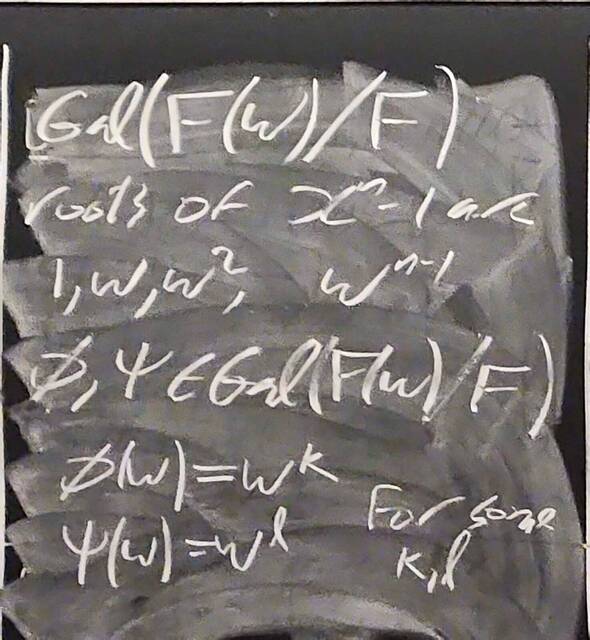 Gal(F(w)/F)
roots of xⁿ-1 are
1, w, w², wⁿ⁻¹
ϕ, Ψ ∈ Gal(F(w)/F)
ϕ(w) = wᵏ
Ψ(w) = wˡ For some
k, l